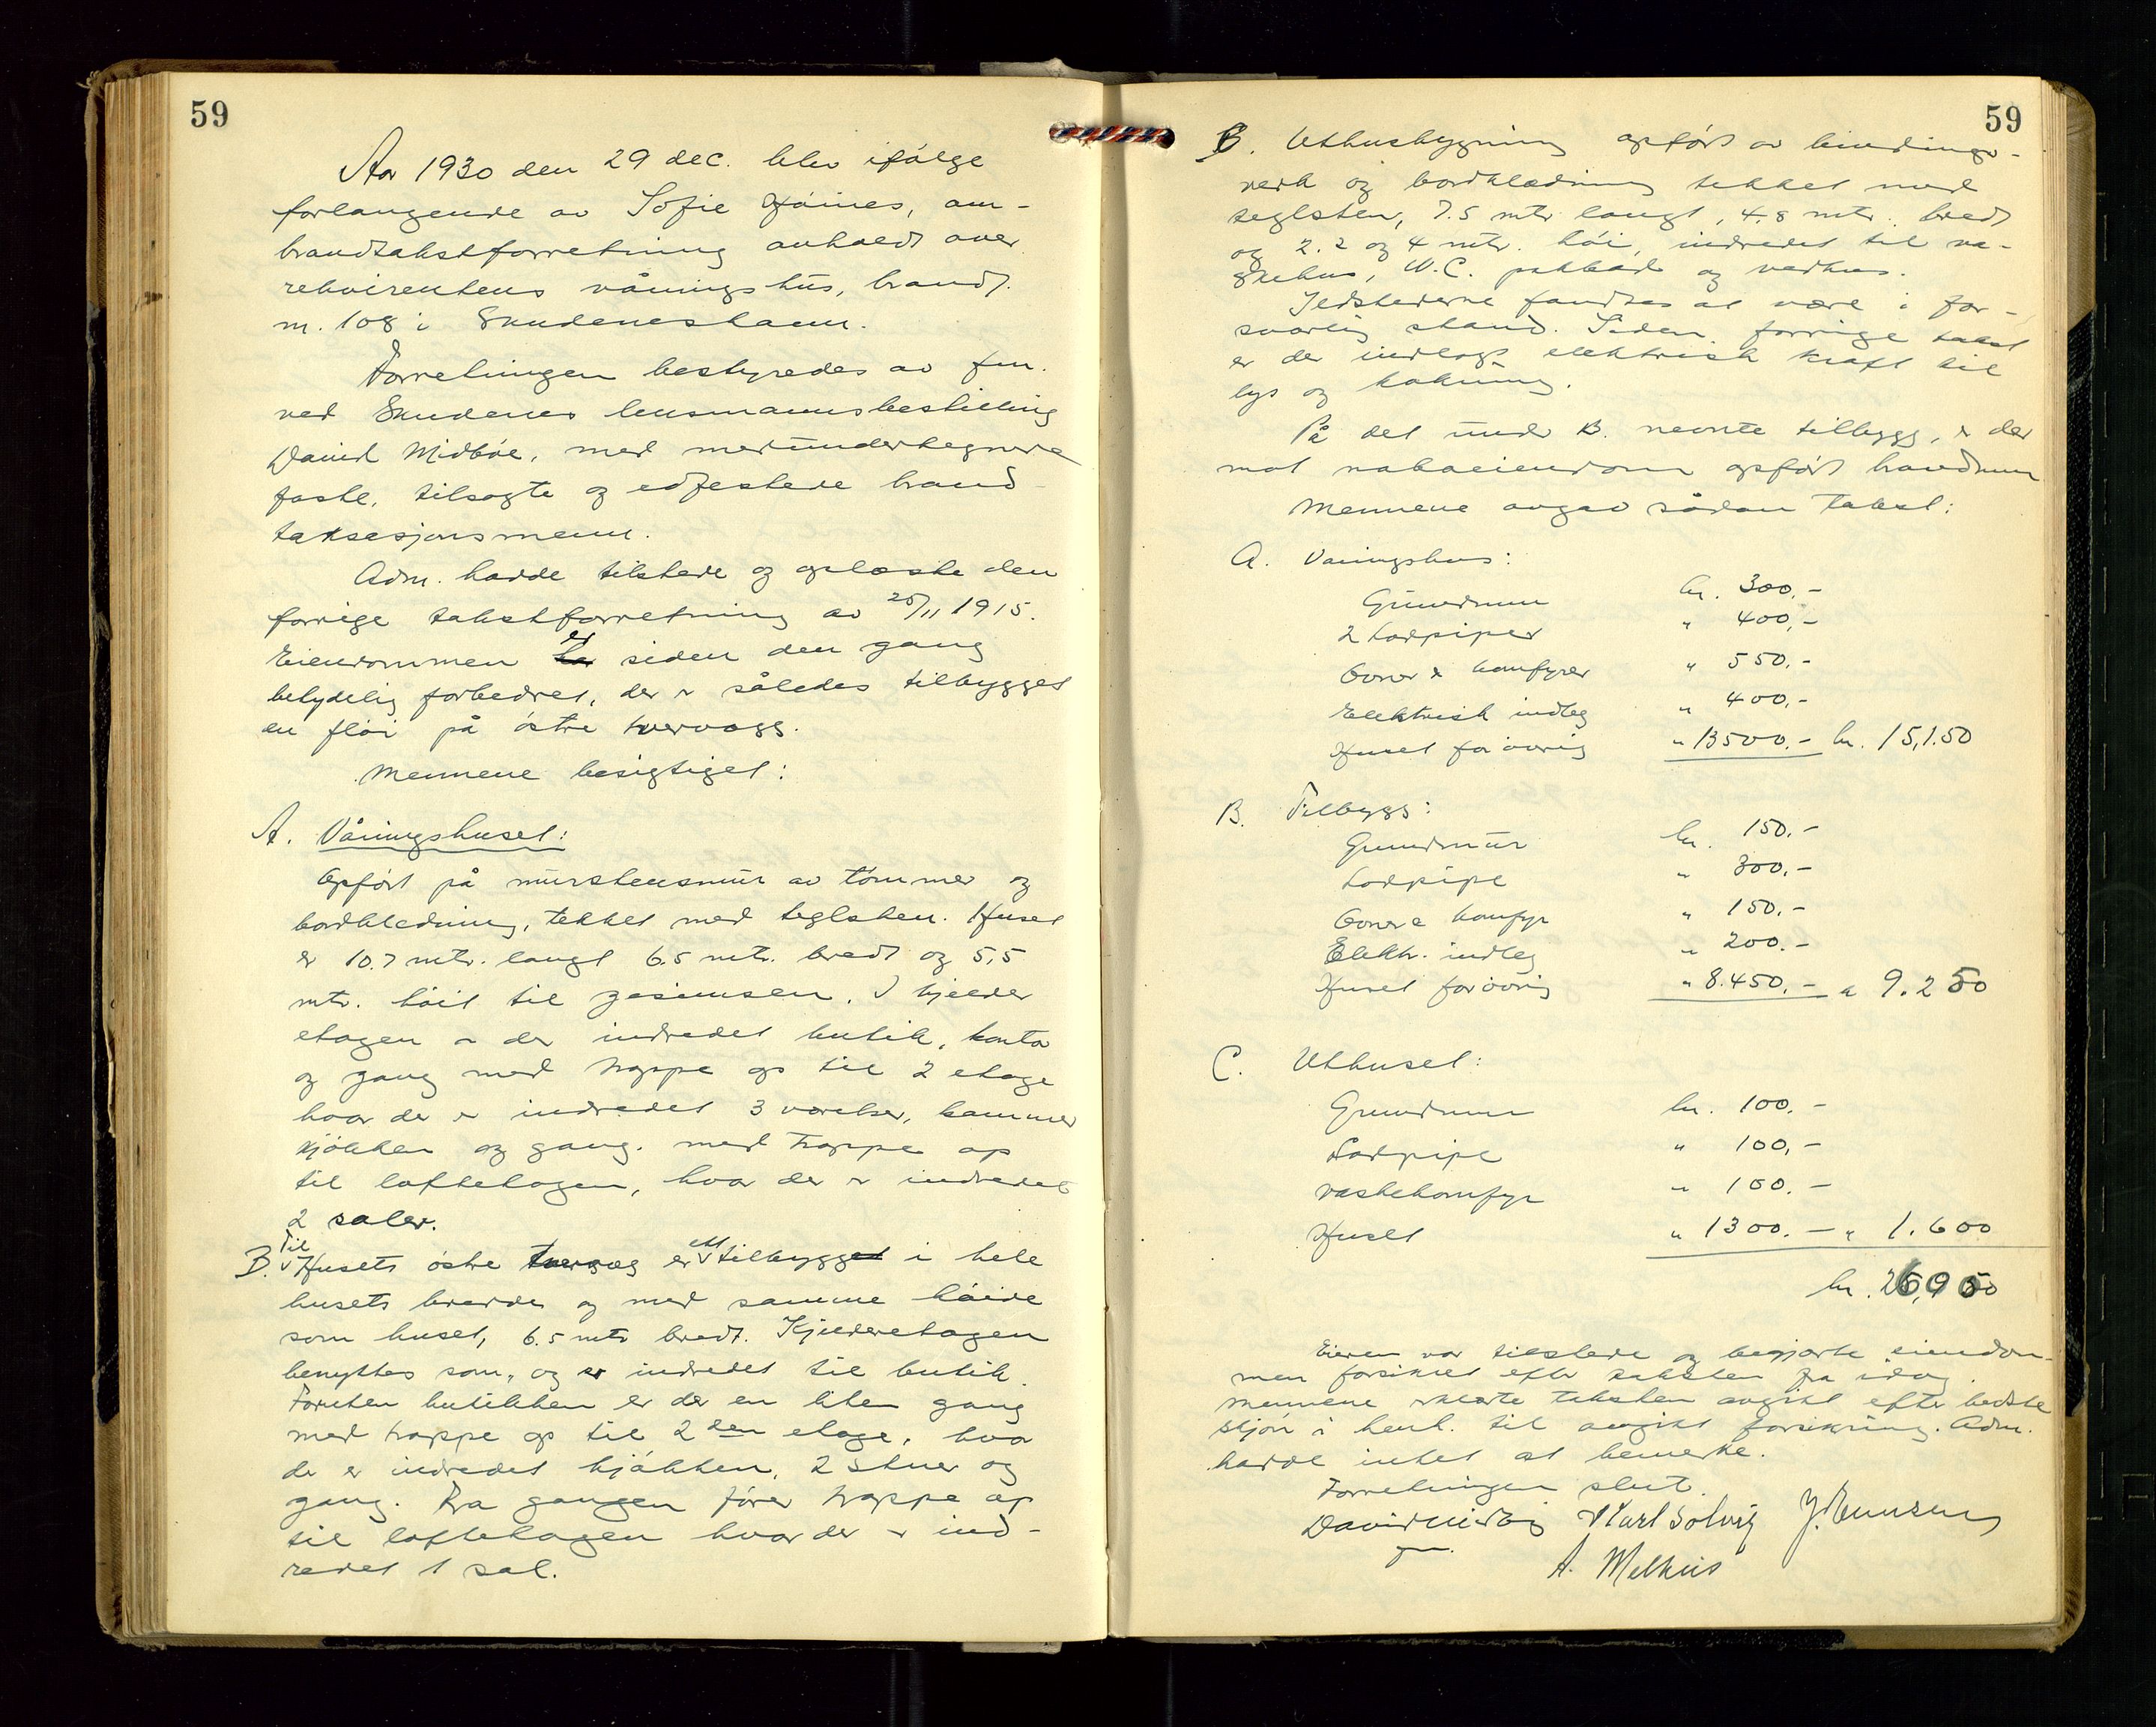 59
Aar 1930 den 29 dec. blev ifølge
forlangende av Sofie Høines, om-
brandtakstforretning avholdt over
rekvirentens våningshus, brandt.
nr. 108 i Skudeneshavn.
Forretningen bestyredes av fm.
ved Skudenes lensmannsbestilling
David Midbøe, med medundertegnede
faste, tilsagte og edfestede brand-
taksasjonsmenn.
Adm. hadde tilstede og oplæste den
forrige takstforretning av 25/11 1915.
Eiendommen er siden den gang
betydelig forbedret, der er således tilbygget
en fløi på østre tvervegg.
Mennene besigtiget:
A. Våningshuset:
Opført på murstensmur av tømmer og
bordkledning, tekket med teglsten. Huset
er 10.7 mtr. langt 6.5 mtr. bredt og 5,5
mtr. høit til gesimsen. I kjelder
etagen er der indredet butik, kontor
og gang med trappe op til 2 etage
hvor der er indredet 3 værelser, kammer
kjøkken og gang. med trappe op
til loftetagen, hvor der er indredet
2 saler.
B. Til Husets østre tvervæg er ett tilbygget i hele
husets bredde og med samme høide
som huset, 6.5 mtr bredt. Kjelderetagen
benyttes som, og er indredet til butik.
Foruten butikken er der en liten gang
med trappe op til 2den etage, hvor
der er indredet kjøkken, 2 stuer og
gang. Fra gangen fører trappe op
til loftetagen hvor der er ind-
redet 1 sal.
59
C. Uthusbygning opført av bindings-
verk og bordklædning tekket med
teglsten, 7.5 mtr langt, 4.8 mtr. bredt
og 2.2 og 4 mtr. høi, indredet til va-
skehus, W.C. pakkbod og vedhus.
Ildstederne fandtes at være i for-
svarlig stand. Siden forrige takst
er der indlagt elektrisk kraft til
lys og kokning.
På det under B. nevnte tilbygg, er der
mot naboeiendom opført brandmur
Mennene avgav sådan takst:
A. Vaningshus:
Grundmur kr. 300.-
2 Lodpiper " 400,-
Ovner & komfyrer " 550.-
Elektrisk indleg " 400,-
Huset forøvrig " 13500.- kr. 15,150
B. Tilbygg:
Grundmur kr. 150.-
Lodpipe " 300,-
Ovner & komfyr " 150.-
Elektr. indleg " 200.-
Huset forøvrig " 8.450.- " 9.250
C. Uthuset:
Grundmur kr. 100.-
Lodpipe " 100,-
vaskekomfyr " 100.-
Huset " 1300.- " 1.600
kr. 26,000
Eieren var tilstede og begjærte eiendom-
men forsikret efter taksten fra idag.
Mennene erklærte taksten avgitt efter bedste
skjøn i henh. til avgitt forsikring. Adm.
hadde intet at bemerke.
Forretningen slut.
David Midbø Karl Solvig
fm.
A. Melhus